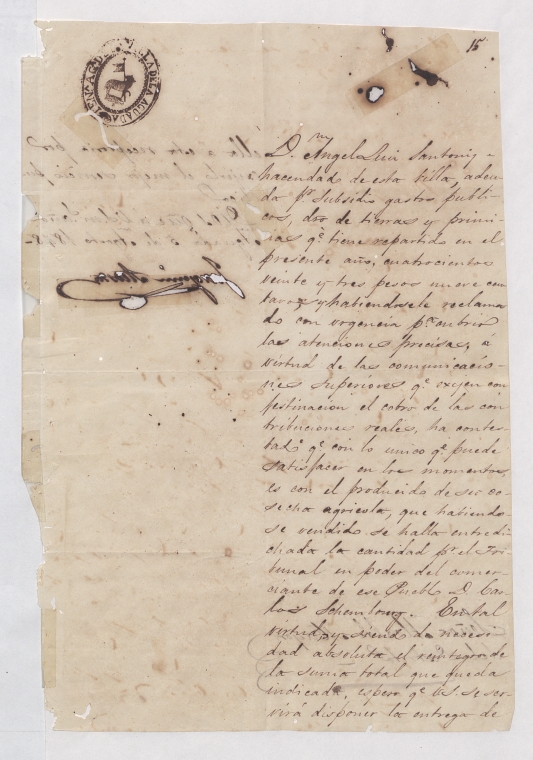 15
D. Angel Luis Santoni y
hacendado de esta Villa, adeu-
da pr. Subsidio gastos publi-
cos, dro de tierras y primi-
cias qe. tiene repartido en el
presente año, cuatrocientos
veinte y tres pesos nueve cen
tavos y habiendosele reclama
do con urgencia pa. cubrir
las atenciones precisas, a
virtud de las comunicacio-
nes superiores qe. exijen con
festinacion el cobro de las con
tribuciones reales, ha contes-
tado qe. con lo unico qe. puede
satisfacer en los momentos,
es con el producido de su co-
secha agricola, que habiendo
se vendido se halla entredi-
chada la cantidad pr. el Tri-
bunal en poder del comer-
ciante de ese Pueblo D. Car-
los Schembourg. En tal
virtud, y siendo de necesi
dad absoluta el reintegro de
la suma total que queda
indicada, espero qe. U.S. se ser-
virá disponer la entrega de